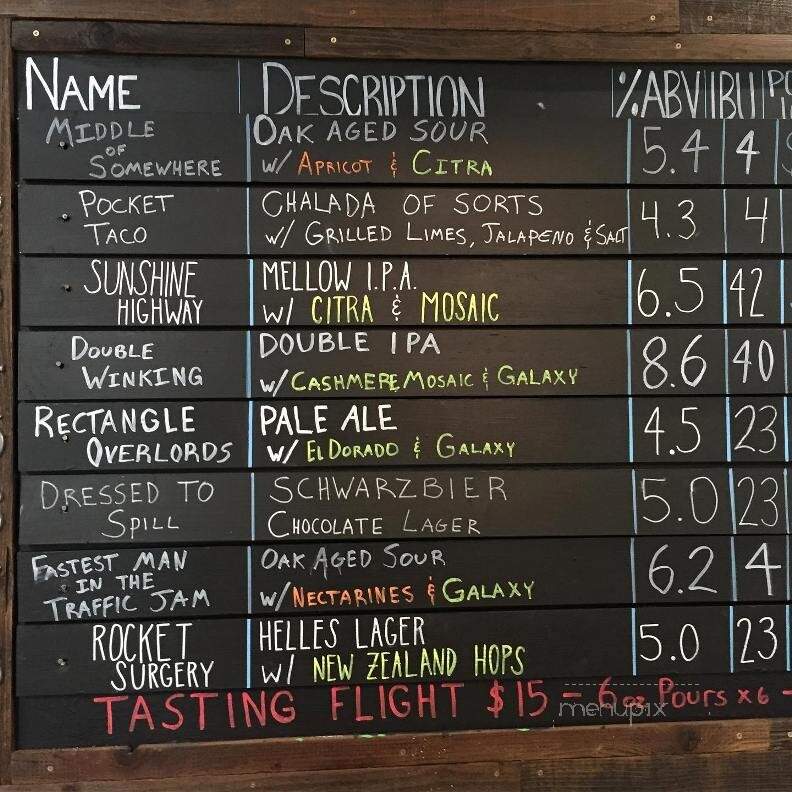 NAME DESCRIPTION %ABV IBU
MIDDLE OF SOMEWHERE OAK AGED SOUR 5.4 4
w/ APRICOT & CITRA
POCKET TACO CHALADA OF SORTS 4.3 4
w/ GRILLED LIMES, JALAPENO & SALT
SUNSHINE HIGHWAY MELLOW I.P.A. 6.5 42
w/ CITRA & MOSAIC
DOUBLE WINKING DOUBLE IPA 8.6 40
w/ CASHMERE, MOSAIC & GALAXY
RECTANGLE OVERLORDS PALE ALE 4.5 23
w/ EL DORADO & GALAXY
DRESSED TO SPILL SCHWARZBIER 5.0 23
CHOCOLATE LAGER
FASTEST MAN IN THE TRAFFIC JAM OAK AGED SOUR 6.2 4
w/ NECTARINES & GALAXY
ROCKET SURGERY HELLES LAGER 5.0 23
w/ NEW ZEALAND HOPS
TASTING FLIGHT $15 - 6 oz Pours x 6 -
menupix